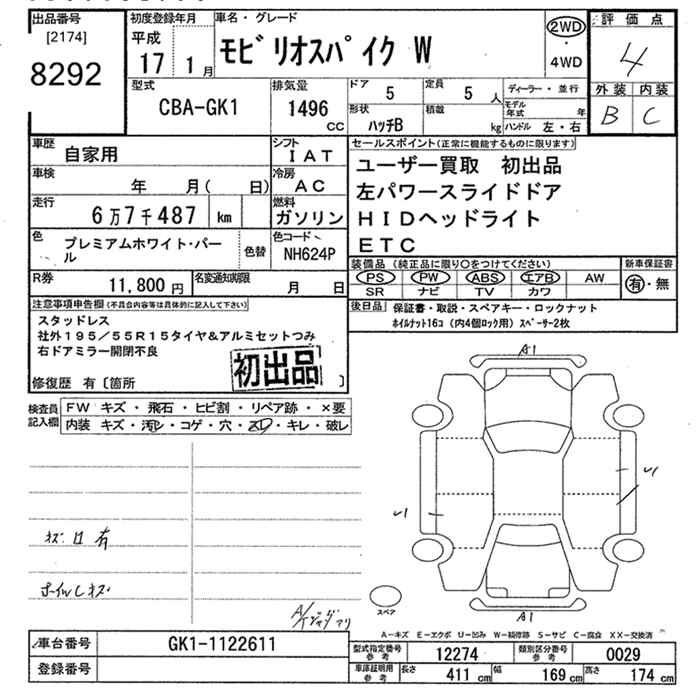 出品番号
[2174]
8292
初度登録年月
平成
17 1月
車名・グレード
モビリオスパイク W
2WD
・
4WD
評価点
4
外装 内装
B C
型式
CBA-GK1
排気量
1496
CC
ドア
5
定員
5 人
形状
ハッチB
積載
kg
ディーラー・並行
モデル年式 年
ハンドル 左・右
車歴
自家用
シフト
IAT
車検
年 月( 日)
冷房
AC
走行
6万7千487 km
燃料
ガソリン
色
プレミアムホワイト・パール
色替
色コード
NH624P
R券
11,800円
名変通知期限
月 日
セールスポイント(正常に機能するものに限ります)
ユーザー買取 初出品
左パワースライドドア
HIDヘッドライト
ETC
装備品 (純正品に限り○をつけてください)
PS PW ABS エアB AW
SR ナビ TV カワ
新車保証書
有・無
後日品 保証書・取説・スペアキー・ロックナット
ホイルナット16コ (内4個ロック用) スペーサー2枚
注意事項申告欄(不具合内容等は具体的に記入して下さい)
スタッドレス
社外195/55R15タイヤ&アルミセットつみ
右ドアミラー開閉不良
初出品
修復歴 有〔箇所 〕
検査員記入欄
FW キズ・飛石・ヒビ割・リペア跡・×要
内装 キズ・汚レ・コゲ・穴・スレ・キレ・破レ
キズ 凹 有
ホイルキズ
A1
A1
スペア
A-キズ E-エクボ U-凹み W-補修跡 S-サビ C-腐食 XX-交換済
車台番号
GK1-1122611
登録番号
型式指定番号
参考
12274
類別区分番号
参考
0029
車庫証明用
参考
長さ
411 cm
幅
169 cm
高さ
174 cm